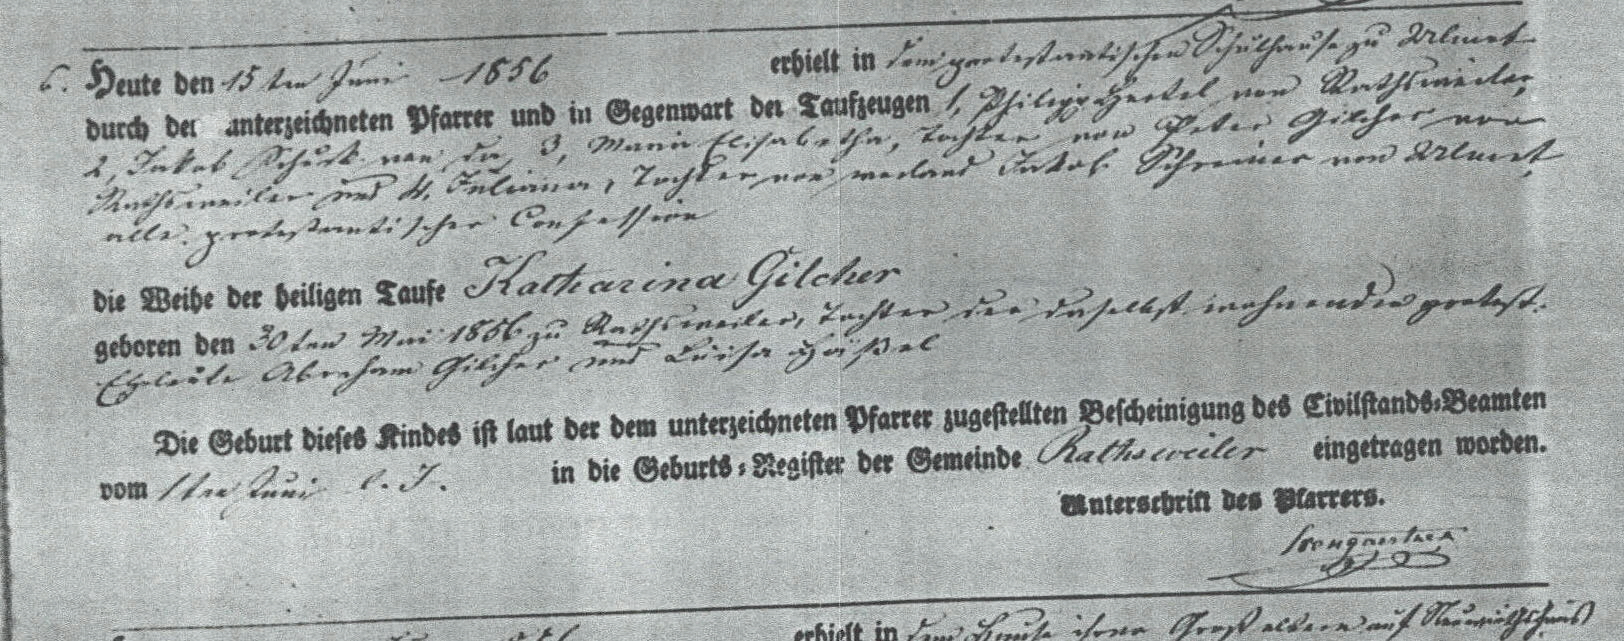 6. Heute den 15ten Juni 1856 erhielt in dem protestantischen Schulhause zu Ulmet
durch der unterzeichneten Pfarrer und in Gegenwart der Taufzeugen 1, Philipp Hertel von Rathsweiler,
2, Jakob Schuck von da, 3, Maria Elisabetha, Tochter von Peter Gilcher von
Rathsweiler und 4, Juliana, Tochter von weiland Jakob Schreiner von Ulmet,
alle protestantischer Confession
die Weihe der heiligen Taufe Katharina Gilcher
geboren den 30ten Mai 1856 zu Rathsweiler, Tochter der daselbst wohnenden protest.
Eheleute Abraham Gilcher und Luisa
Die Geburt dieses Kindes ist laut der dem unterzeichneten Pfarrer zugestellten Bescheinigung des Civilstands-Beamten
vom 1ten Juni l. J. in die Geburts-Register der Gemeinde Rathsweiler eingetragen worden.
Unterschrift des Pfarrers.
erhielt in dem Hause ihrer Großeltern auf